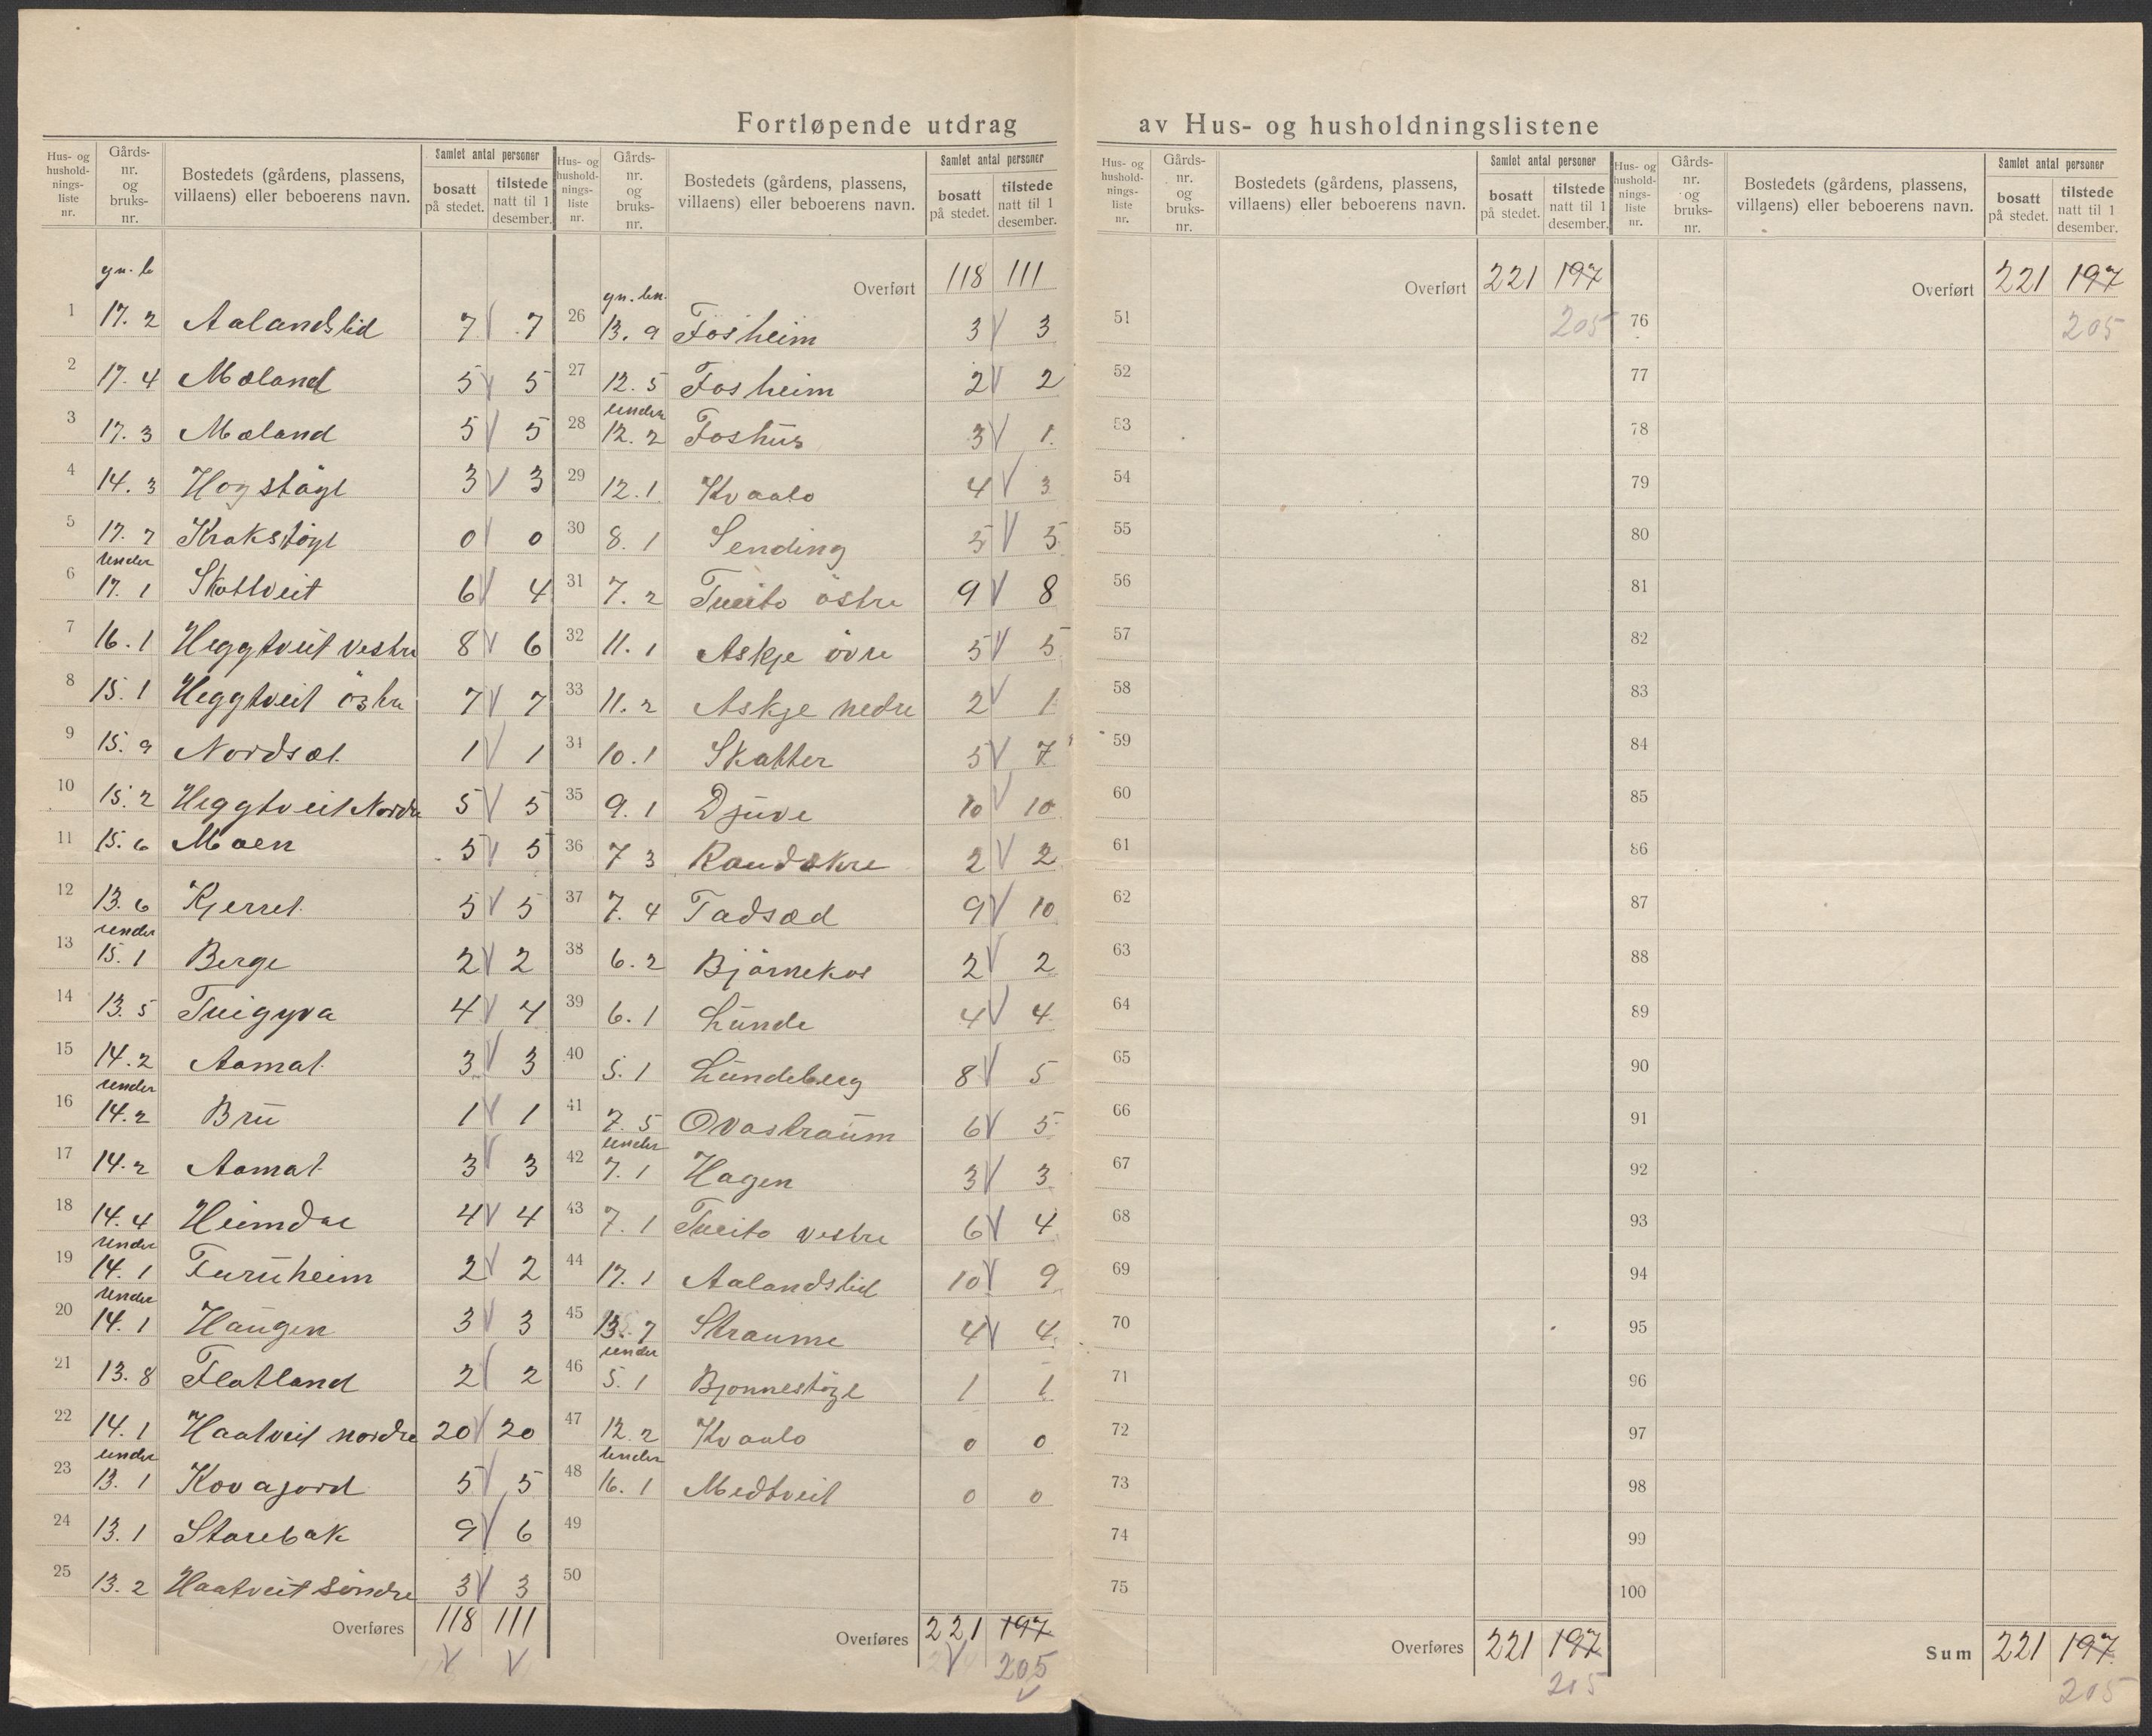 Fortløpende utdrag av Hus- og husholdningslistene
Hus- og husholdnings-liste nr. Gårds-nr. og bruks-nr. Bostedets (gårdens, plassens, villaens) eller beboerens navn. Samlet antal personer bosatt på stedet. tilstede natt til 1 desember.
gn. b
1 17. 2 Aalandslid 7 7
2 17. 4 Mæland 5 5
3 17. 3 Mæland 5 5
4 14. 3 Hogstäyl 3 3
5 17. 7 Krakstöyl 0 0
6 under 17. 1 Skottveit 6 4
7 16. 1 Heggtveit vestre 8 6
8 15. 1 Heggtveit östre 7 7
9 15. 9 Nordsæl 1 1
10 15. 2 Heggtveit Nordre 5 5
11 15. 6 Moen 5 5
12 13. 6 Kjerret 5 5
13 under 15. 1 Berge 2 2
14 13. 5 Tveigyva 4 4
15 14. 2 Aamot 3 3
16 under 14. 2 Bru 1 1
17 14. 2 Aamot 3 3
18 14. 4 Heimdal 4 4
19 under 14. 1 Furuheim 2 2
20 under 14. 1 Haugen 3 3
21 13. 8 Flatland 2 2
22 14. 1 Haatveit nordre 20 20
23 under 13. 1 Kovajord 5 5
24 13. 1 Starebak 9 6
25 13. 2 Haatveit söndre 3 3
Overføres 118 111
Hus- og husholdnings-liste nr. Gårds-nr. og bruks-nr. Bostedets (gårdens, plassens, villaens) eller beboerens navn. Samlet antal personer bosatt på stedet. tilstede natt til 1 desember.
Overført 118 111
gn. bn.
26 13. 9 Fosheim 3 3
27 12. 5 Fosheim 2 2
28 under 12. 2 Foshus 3 1
29 12. 1 Kvaalo 4 3
30 8. 1 Sending 5 5
31 7. 2 Tveito östre 9 8
32 11. 1 Askje övre 5 5
33 11. 2 Askje nedre 2 1
34 10. 1 Skatter 5 7
35 9. 1 Djuve 10 10
36 7 3 Raudækre 2 2
37 7. 4 Tadsæd 9 10
38 6. 2 Björnekos 2 2
39 6. 1 Lunde 4 4
40 5. 1 Lundeberg 8 5
41 7. 5 Ovastraum 6 5
42 under 7. 1 Hagen 3 3
43 7. 1 Tveito vestre 6 4
44 17. 1 Aalandslid 10 9
45 13. 7 Straume 4 4
46 under 5. 1 Bjonnestöyl 1 1
47 12. 2 Kvaalo 0 0
48 under 16. 1 Medtveit 0 0
49
50
Overføres 221 197
205
Hus- og husholdnings-liste nr. Gårds-nr. og bruks-nr. Bostedets (gårdens, plassens, villaens) eller beboerens navn. Samlet antal personer bosatt på stedet. tilstede natt til 1 desember.
Overført 221 197
51 205
52
53
54
55
56
57
58
59
60
61
62
63
64
65
66
67
68
69
70
71
72
73
74
75
Overføres 221 197
205
Hus- og husholdnings-liste nr. Gårds-nr. og bruks-nr. Bostedets (gårdens, plassens, villaens) eller beboerens navn. Samlet antal personer bosatt på stedet. tilstede natt til 1 desember.
Overført 221 197
76 205
77
78
79
80
81
82
83
84
85
86
87
88
89
90
91
92
93
94
95
96
97
98
99
100
Sum 221 197
205